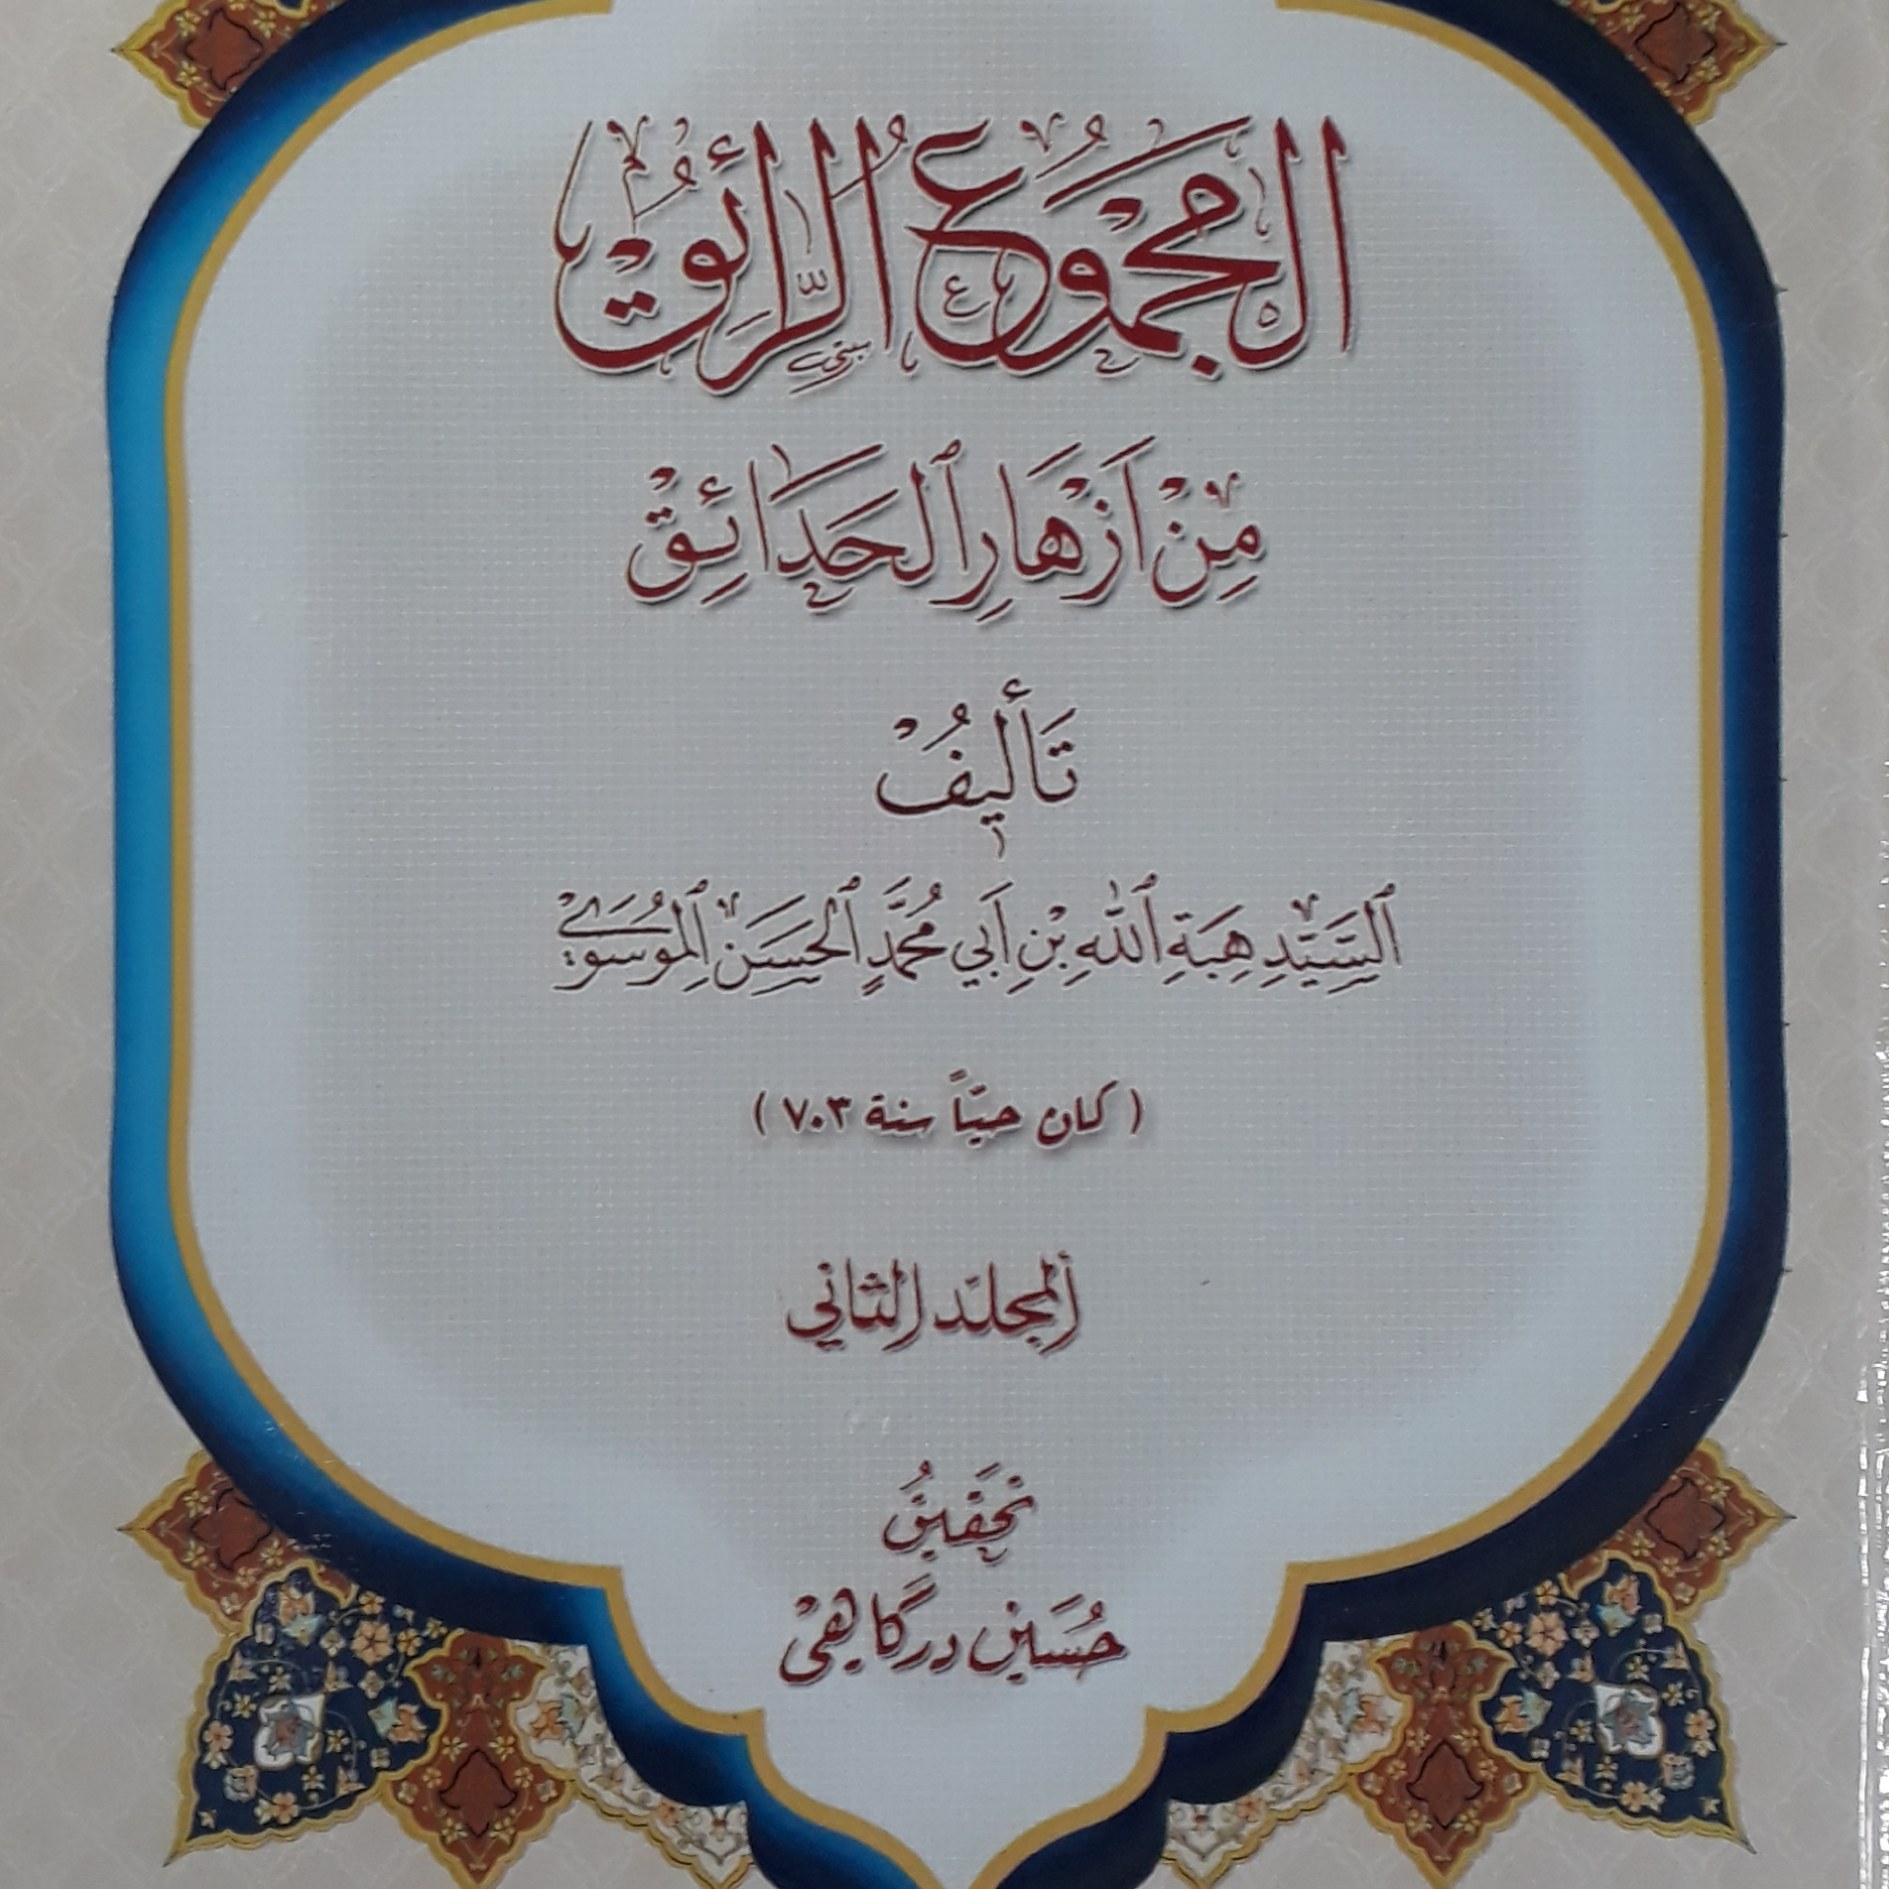 المجموع الرائق
من أزهار الحدائق
تأليف
السيد هبة الله بن أبي محمد الحسن الموسوي
( كان حيّاً سنة ٧٠٣ )
المجلد الثاني
تحقيق
حسين درگاهي